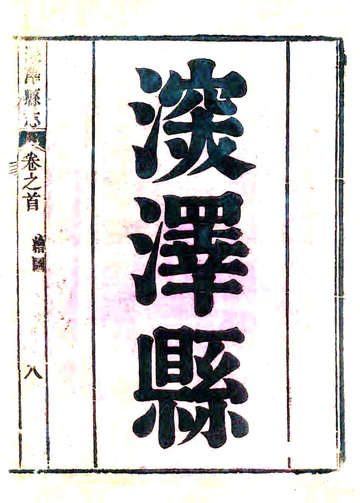 㴱澤縣
澤縣志 卷之首 繪圖 八